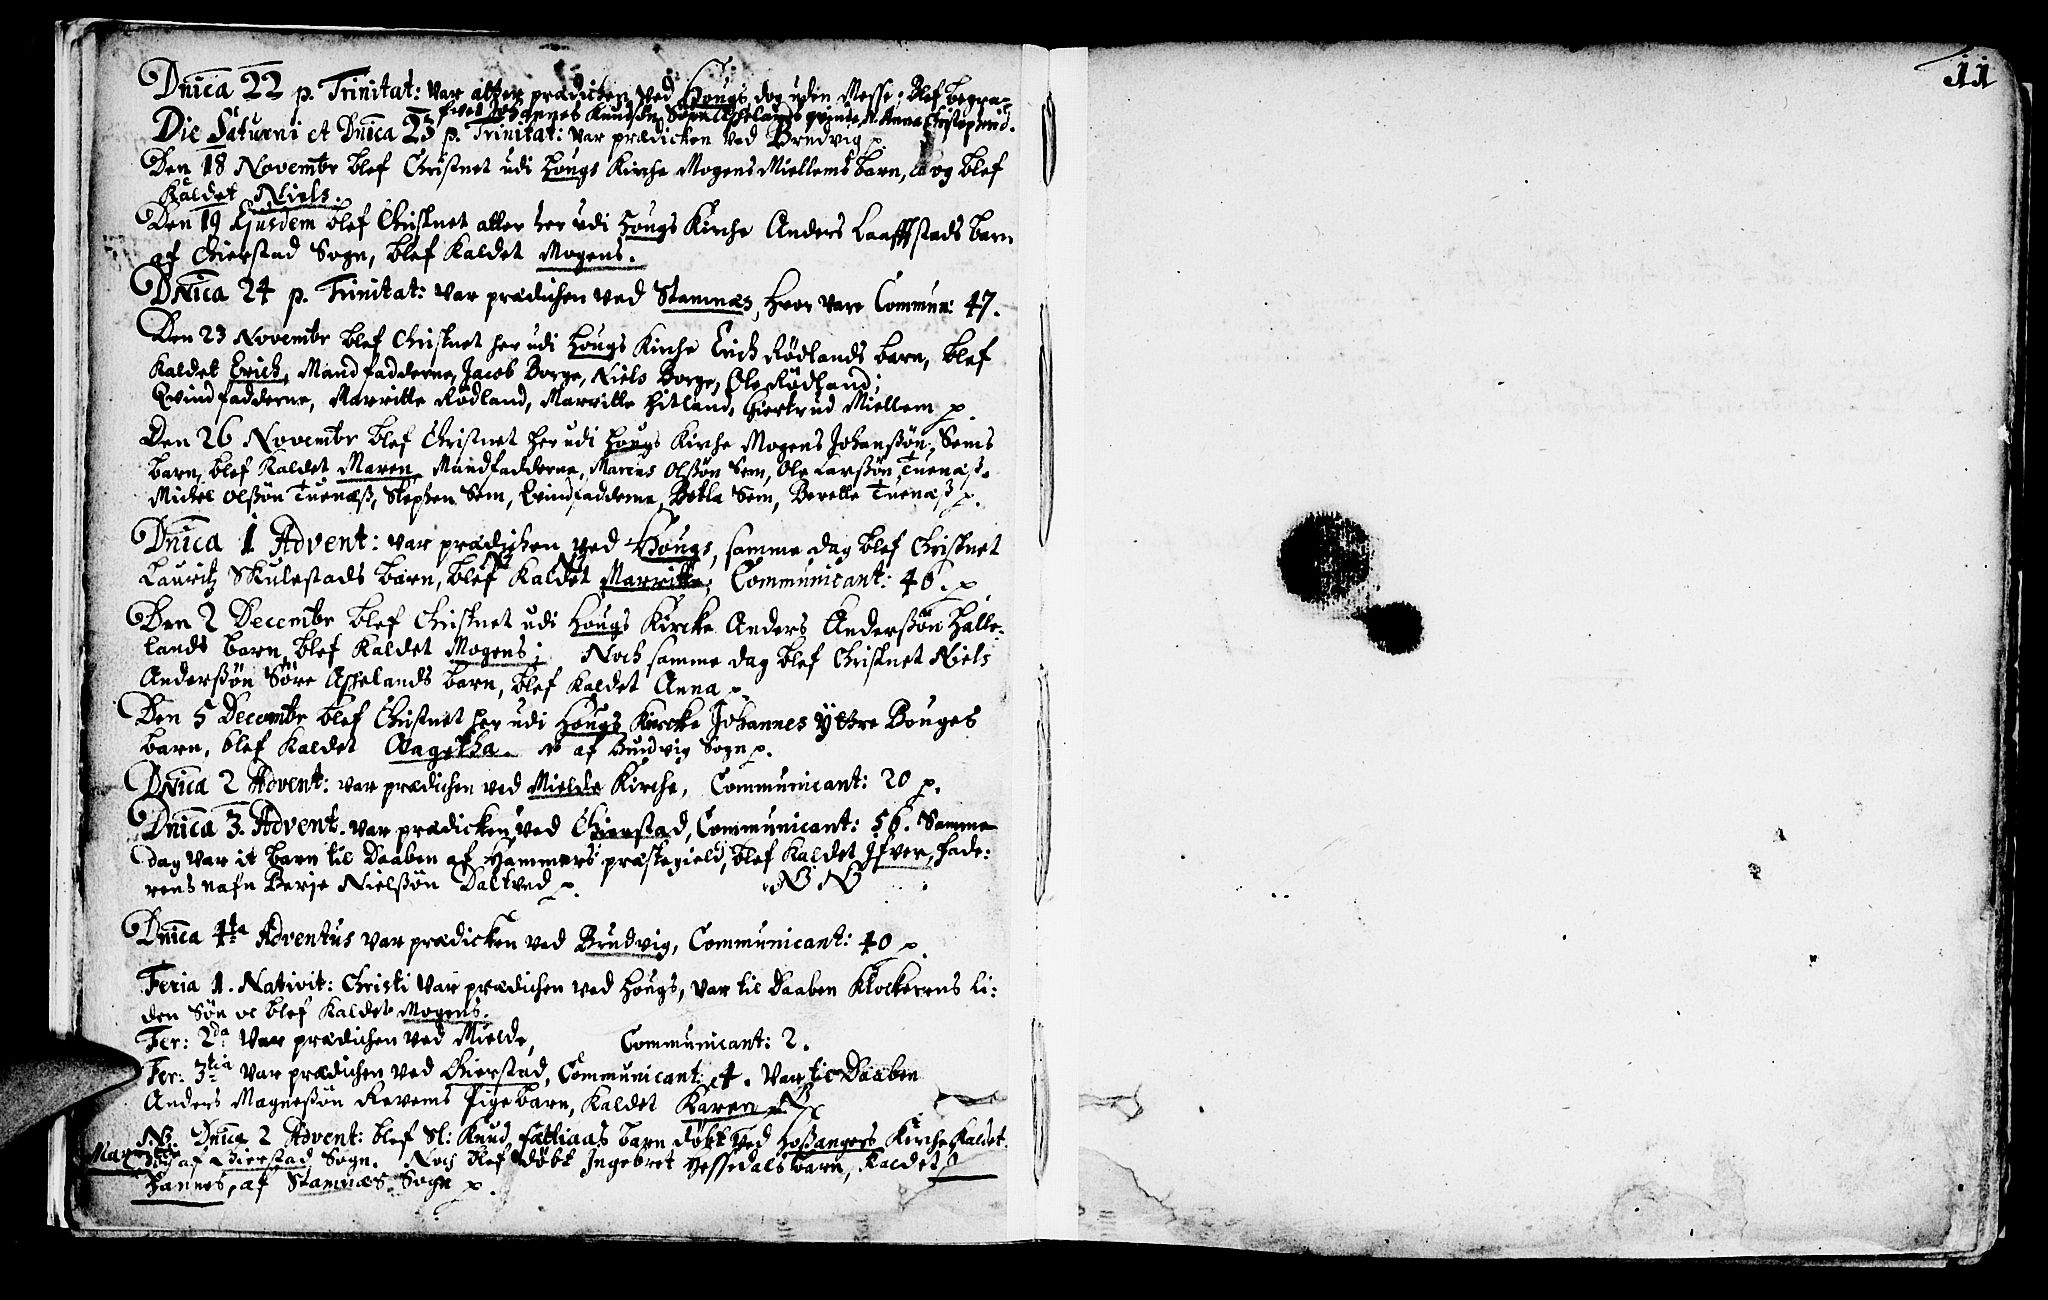 Dnica 22 p. Trinitat: var atter prædicken ved Hougs, dog uden Messe; Blef begra-
fvet Johannes Knudsøn Qvinde, Anna Christophersd.
Die Saturni et Dnica 23 p. Trinitat: var prædicken ved Brudvig p.
Den 18 Novembr blef Christnet udi Hougs Kirche Mogens Miellems barn, og blef
Kaldet Niels.
Den 19 Ejusdem blef Christnet atter her udi Hougs Kirche Anders barn
af Gierstad Sogn, blef Kaldet Mogens.
Dnica 24 p. Trinitat: var prædichen ved Stamnæs, hvor vare Commun: 47.
Den 23 Novembr blef Christnet her udi Hougs Kirche Erich Rødlands barn, blef
Kaldet Erich, Mandfadderne, Jacob Borge, Niels Borge, Ole Rødland;
Qvindfadderne, Marritte Rødland, Marritte Hitland, Giertrud Miellem p.
Den 26 Novembr blef Christnet her udi Hougs Kirche Mogens Johanßøn Sems
barn, blef Kaldet Maren, Mandfadderne, Marcus Olßøn Sem, Ole Larßøn Tuenæß,
Michel Olßøn Tuenæß, Stephen Sem, Qvindfadderne, Botla Sem, Berette Tuenæß p.
Dnica 1 Advent: var prædichen ved Hougs, samme dag blef Christnet
Lauritz Skulestads barn, blef Kaldet Marritte; Communicant: 40. p
Den 2 Decembr blef Christnet udi Hougs Kircke Anders Anderßøn Halle-
lands barn, blef Kaldet Mogens; Noch samme dag blef Christnet Niels
Anderßøn Søre Asselands barn, blef Kaldet Anna p.
Den 5 Decembr blef Christnet her udi Hougs Kircke Johannes Yttre Bouges
barn, blef Kaldet Aagetha. af Brudvig Sogn p.
Dnica 2 Advent: var prædichen ved Mielde Kirche, Communicant: 20 p.
Dnica 3. Advent. var prædicken ved Gierstad, Communicant: 56. Samme
dag var it barn til Daaben af Hammers præstegield, blef Kaldet Ifver, fade:
rens nafn Berje Nielßøn Daltved p. NB NB
Dnica 4ta Adventus var prædicken ved Brudvig, Communicant: 40 p.
Feria 1. Nativit: Christi var prædichen ved Hougs, var til Daaben Klockerens li:
den Søn oc blef Kaldet Mogens.
Fer: 2da var prædichen ved Mielde, Communicant: 2.
Fer: 3tia var prædichen ved Gierstad, Communicant: 4. var til Daaben
Anders Magneßøn Revems Pigebarn, Kaldet Karen p.
NB. Dnica 2 Advent: blef Sl: Knud barn døbt ved Hoßangers Kirche Kaldet
af Gierstad Sogn. Noch blef døbt Ingebret Hessedals barn, Kaldet
Hannes, af Stamnæs Sogn p.
11